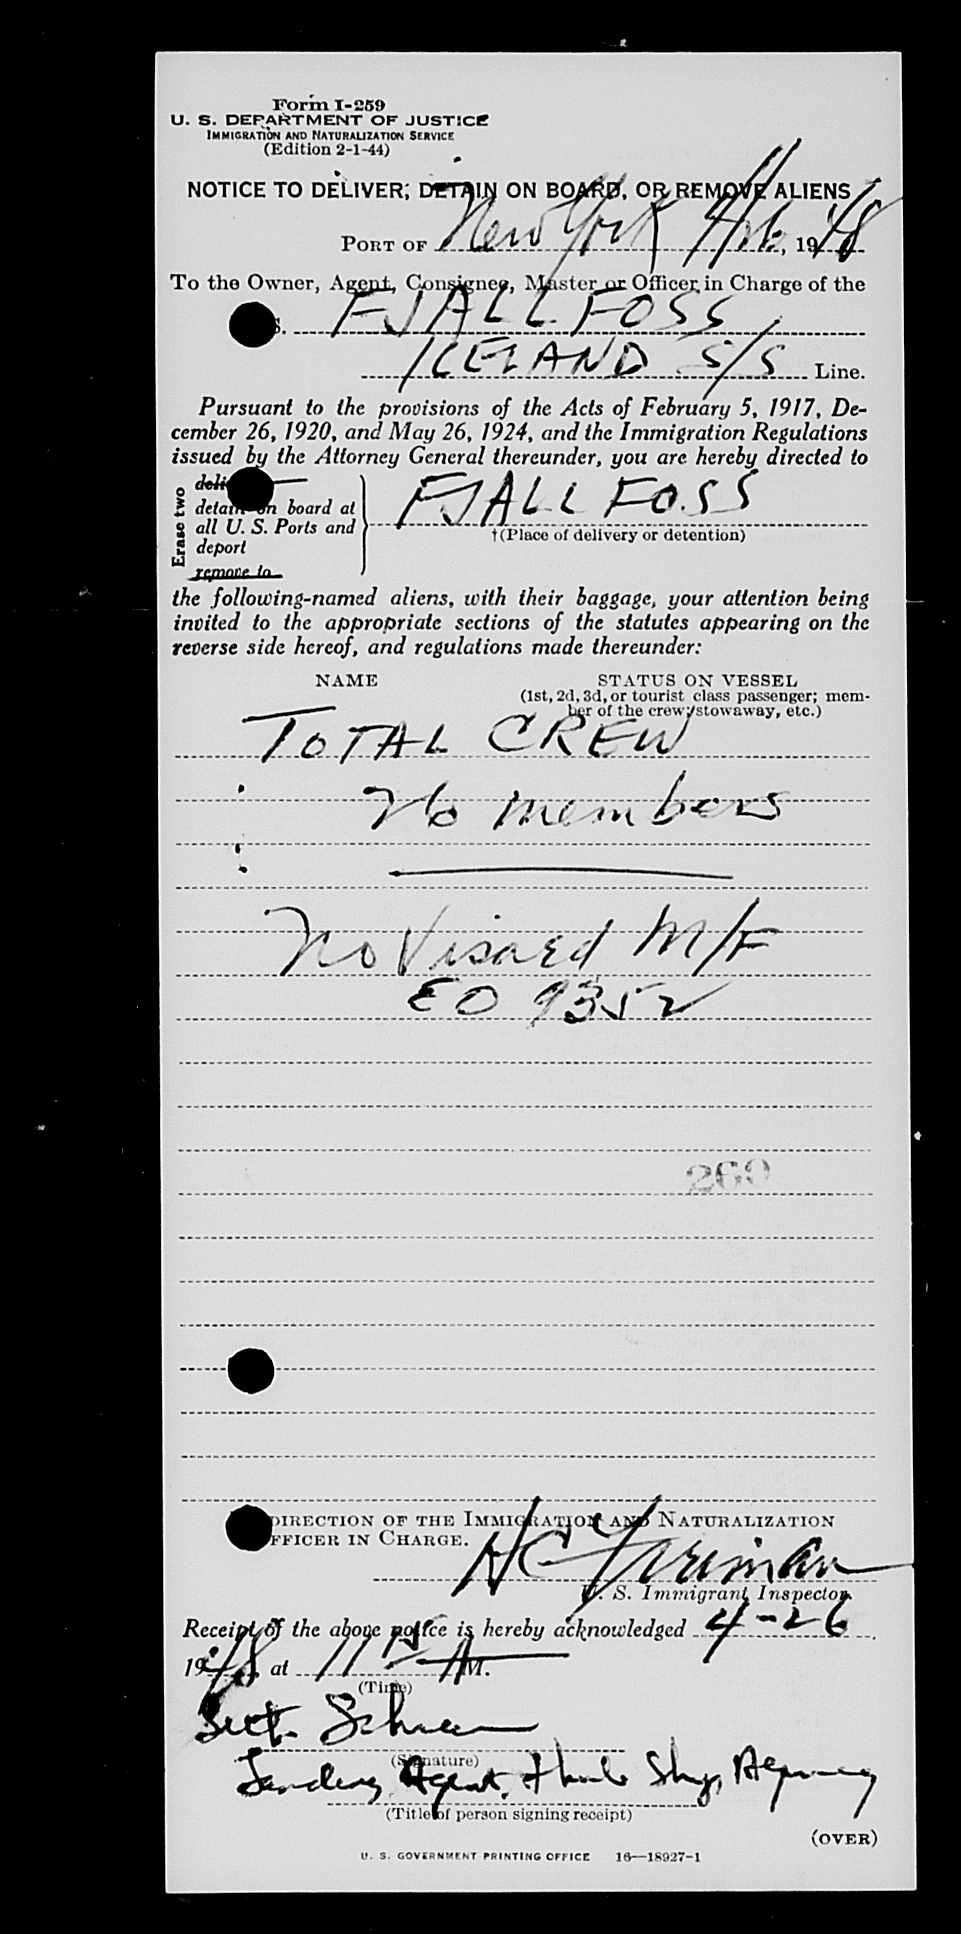 Form I-259
U. S. DEPARTMENT OF JUSTICE
IMMIGRATION AND NATURALIZATION SERVICE
(Edition 2-1-44)
NOTICE TO DELIVER, DETAIN ON BOARD, OR REMOVE ALIENS
PORT OF New York 4/26, 1948
To the Owner, Agent, Consignee, Master or Officer in Charge of the
S. FJALL FOSS
ICELAND S/S Line.
Pursuant to the provisions of the Acts of February 5, 1917, De-
cember 26, 1920, and May 26, 1924, and the Immigration Regulations
issued by the Attorney General thereunder, you are hereby directed to
Erase two
detain on board at FJALL FOSS
all U. S. Ports and †(Place of delivery or detention)
deport
remove to
the following-named aliens, with their baggage, your attention being
invited to the appropriate sections of the statutes appearing on the
reverse side hereof, and regulations made thereunder:
NAME STATUS ON VESSEL
(1st, 2d, 3d, or tourist class passenger; mem-
ber of the crew, stowaway, etc.)
TOTAL CREW
26 members
No Visaed M/F
EO 9352
269
DIRECTION OF THE IMMIGRATION AND NATURALIZATION
OFFICER IN CHARGE.
H C
U. S. Immigrant Inspector.
Receipt of the above notice is hereby acknowledged 4-26,
1948, at 11 15 AM.
(Time)
(Signature)
Agent, Agency
(Title of person signing receipt)
(OVER)
U. S. GOVERNMENT PRINTING OFFICE 16—18927-1